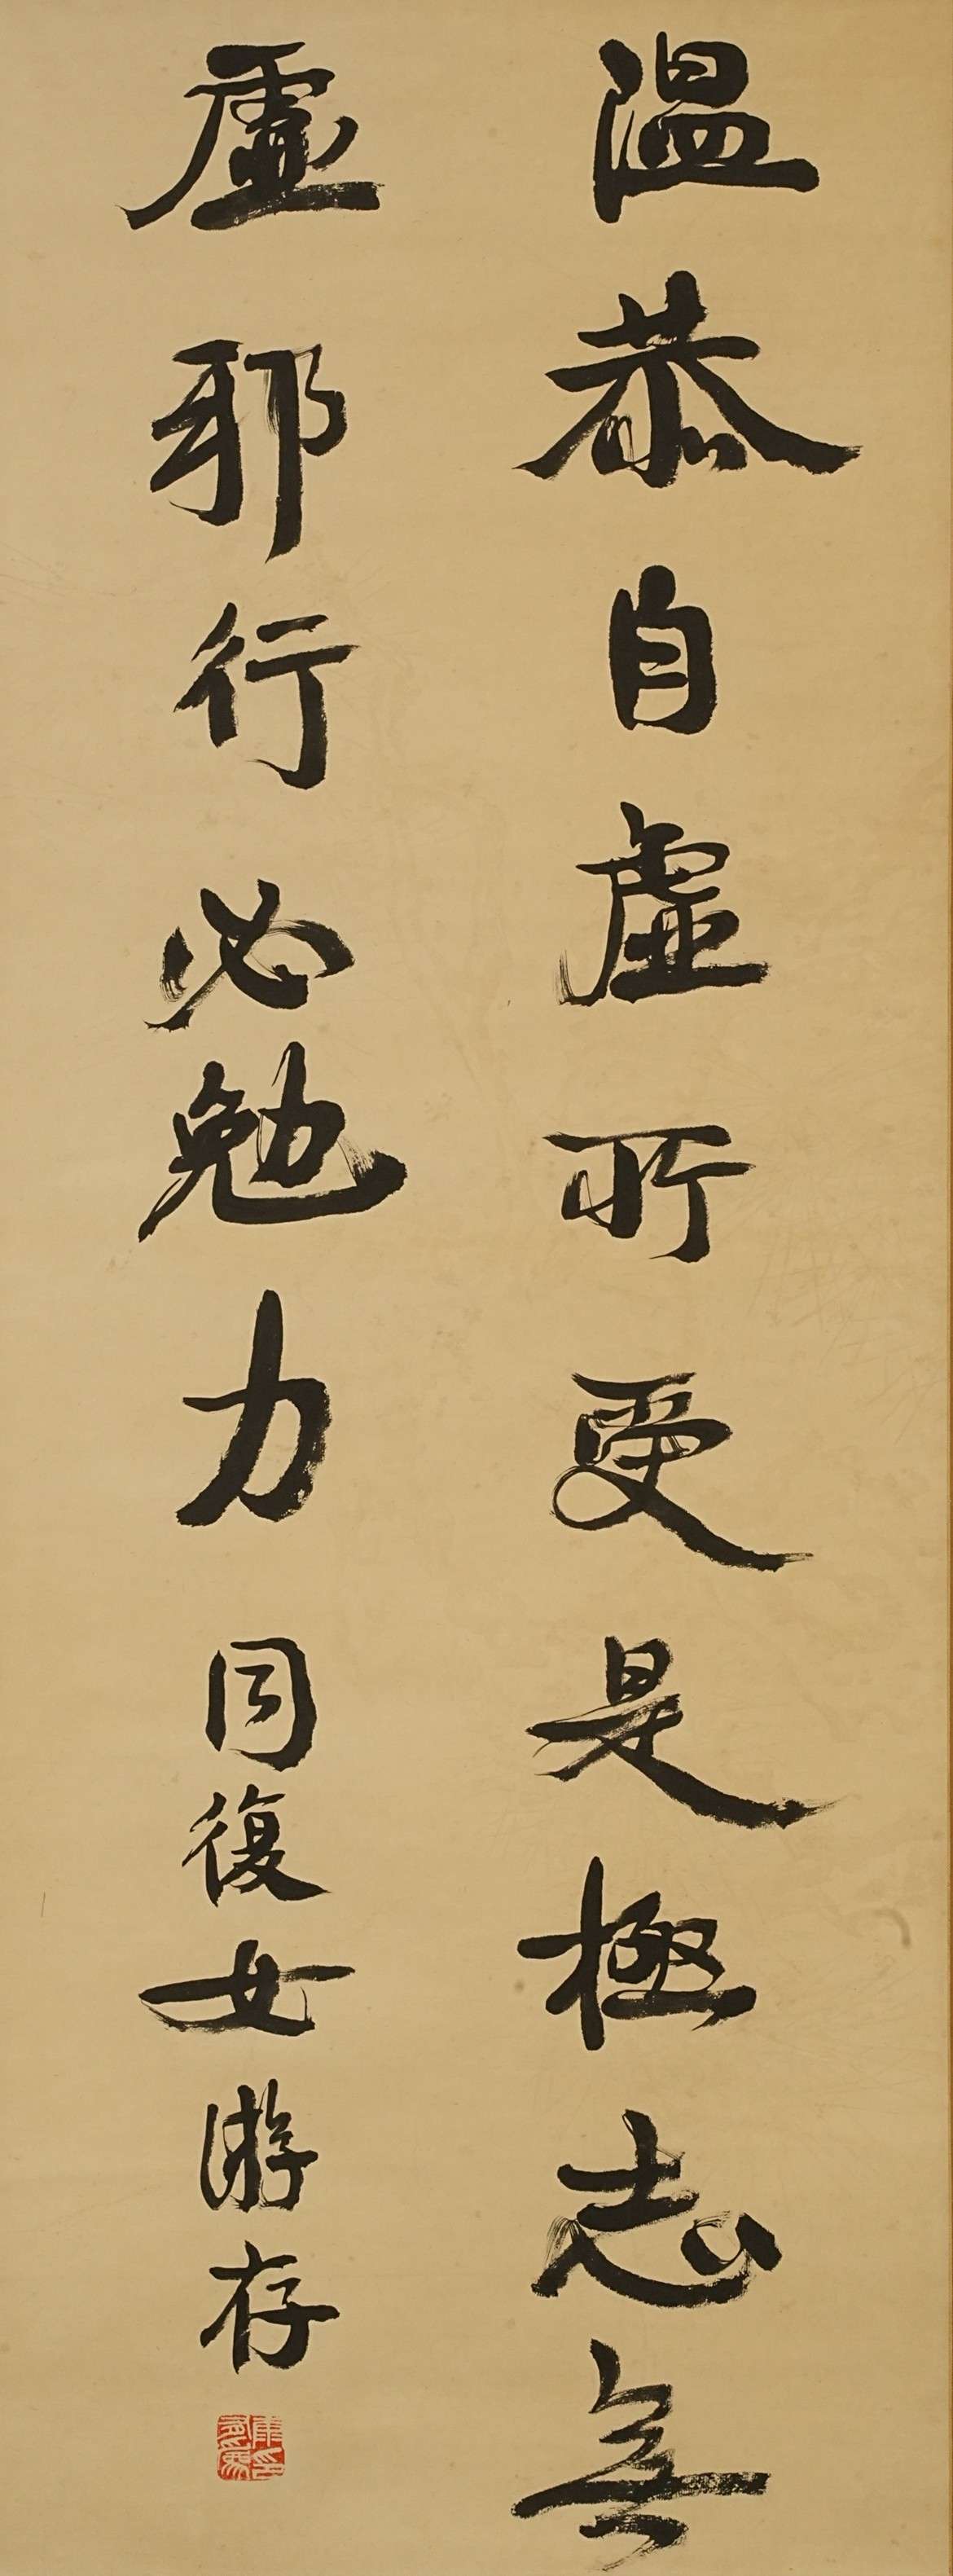 温恭自虛所受是極志無
虛邪行必勉力同復女游存